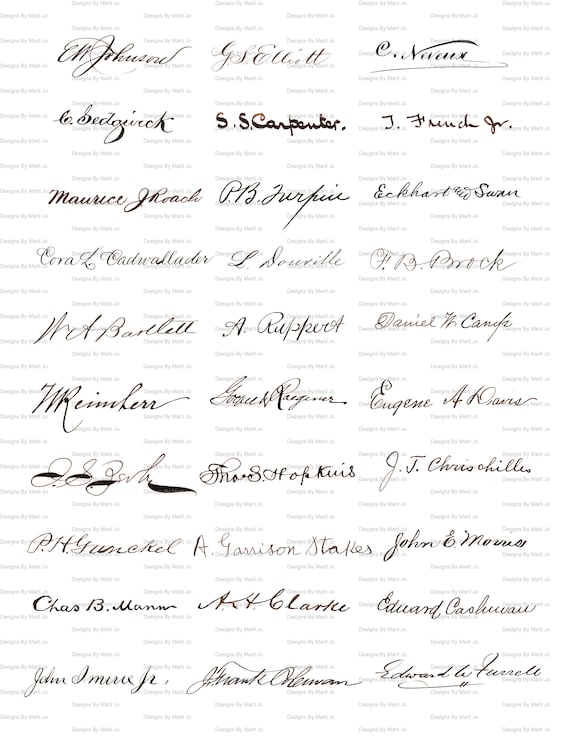 EW Johnson G.S. Elliott C. Neveux
C. Sedgwick S.S. Carpenter. T. French Jr.
Maurice J Roach P.B. Turpin Eckhart and Swan
Cora L Cadwallader L. Douville F. B. Brock
W A Bartlett A. Ruppert Daniel W. Camp
W Reinherr Eugene A Davis
Thos S. Hopkins J. T. Chrischilles
P. H. Gunckel A. Garrison Stakes John E Morris
Chas B. Mann A H Clarke Eduard
John Imrie Jr. J. Frank Edward W Furrell
Designs By Marti Jo